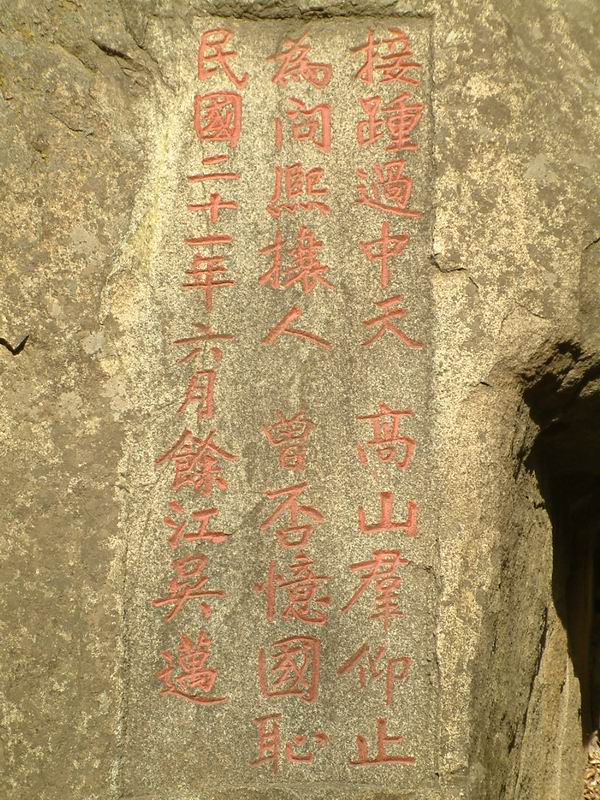 接踵過中天 高山羣仰止
為问熙攘人 曾否憶國恥
民國二十一年六月餘江吳邁